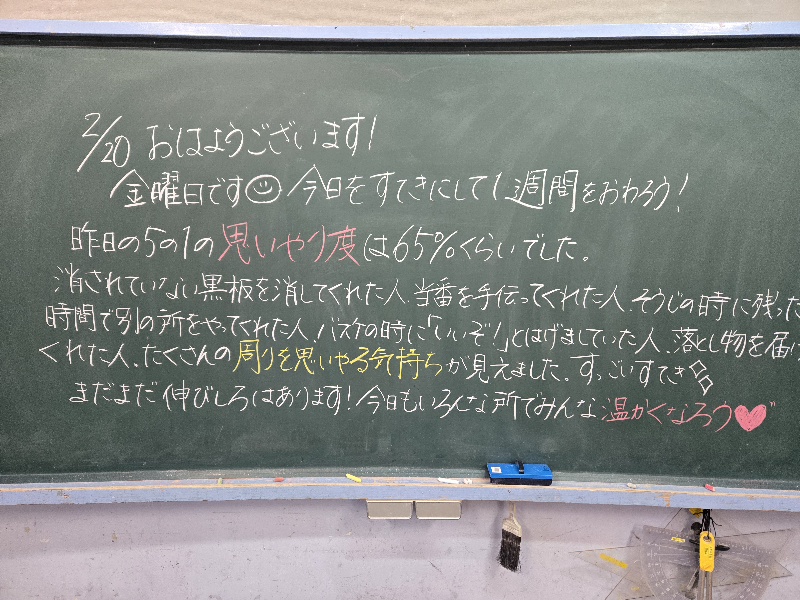 2/20 おはようございます!
金曜日です☺ 今日をすてきにして1週間をおわろう!
昨日の5の1の思いやり度は65%くらいでした。
消されていない黒板を消してくれた人、当番を手伝ってくれた人、そうじの時に残った
時間で別の所をやってくれた人、バスケの時に「いいぞ!」とはげましていた人、落とし物を届け
くれた人、たくさんの周りを思いやる気持ちが見えました。すっごいすてき
まだまだ伸びしろはあります!今日もいろんな所でみんな温かくなろう♥